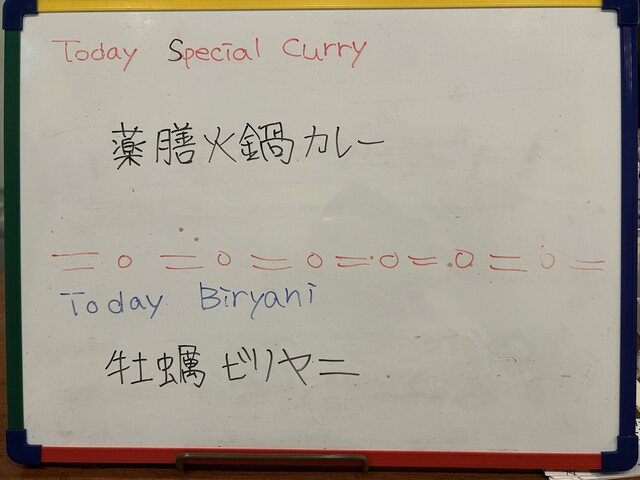 Today Special Curry
薬膳火鍋カレー
=o=o=o=o=o=o=
Today Biryani
牡蠣ビリヤニ